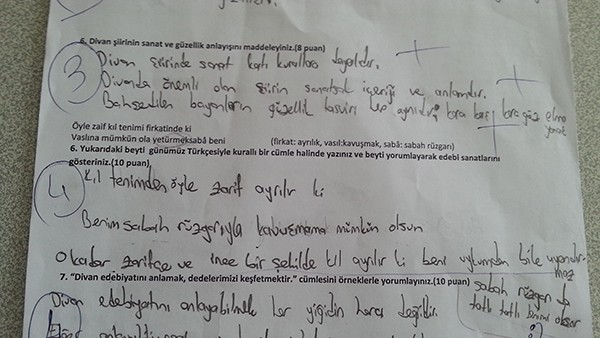 6. Divan şiirinin sanat ve güzellik anlayışını maddeleyiniz.(8 puan)
3
Divan şiirinde sanat katı kurallara dayalıdır.
Divanda önemli olan şiirin sanatsal içeriği ve anlamıdır.
Bahsedilen bayanların güzellik tasviri hep aynıdır; kara kaş kara göz elma yanak
Öyle zaif kıl tenimi firkatinde ki
Vaslına mümkün ola yetürmeksabâ beni (firkat: ayrılık, vasıl:kavuşmak, sabâ: sabah rüzgarı)
6. Yukarıdaki beyti günümüz Türkçesiyle kurallı bir cümle halinde yazınız ve beyti yorumlayarak edebi sanatlarını
gösteriniz.(10 puan)
4
Kıl tenimden öyle zarif ayrılır ki
Benim sabah rüzgarıyla kavuşmama mümkün olsun
O kadar zarifçe ve ince bir şekilde kıl ayrılır ki beni uykumdan bile uyandırmaz
sabah rüzgarı da
tatlı tatlı benimi okşar
7. "Divan edebiyatını anlamak, dedelerimizi keşfetmektir." cümlesini örneklerle yorumlayınız.(10 puan)
Divan edebiyatını anlayabilmek her yiğidin harcı değildir.